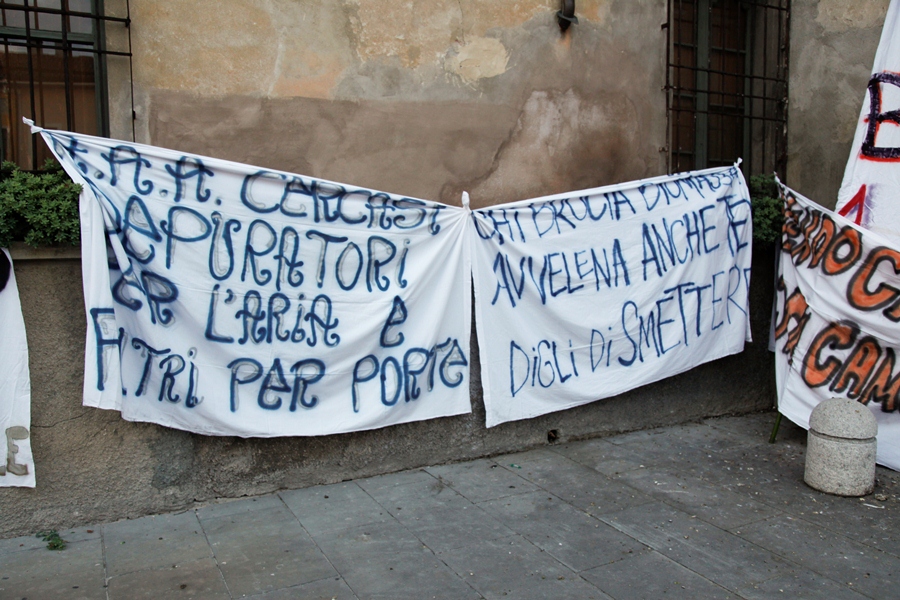 A.A.A. CERCASI
DEPURATORI
PER L'ARIA E
FILTRI PER PORTE
CHI BRUCIA BIOMASSA
AVVELENA ANCHE TE
DIGLI DI SMETTERE